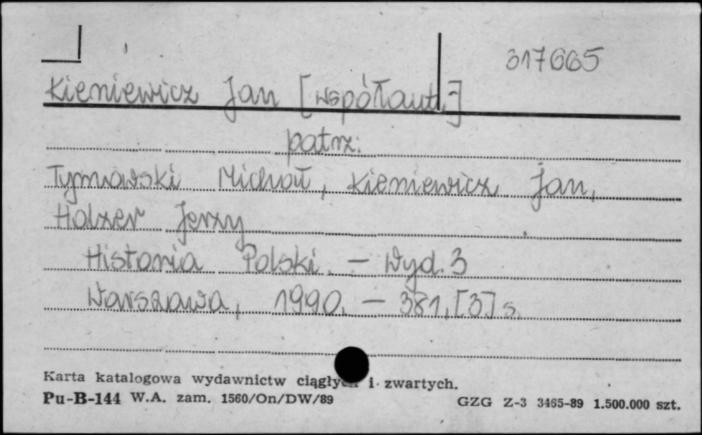 317665
Kieniewicz Jan [współaut.]
patrz:
Tymowski Michał, Kieniewicz Jan,
Holzer Jerzy
Historia Polski. – Wyd. 3
Warszawa, 1990. – 381, [3] s.
Karta katalogowa wydawnictw ciągłych i zwartych.
Pu-B-144 W.A. zam. 1560/On/DW/89
GZG Z-3 3465-89 1.500.000 szt.